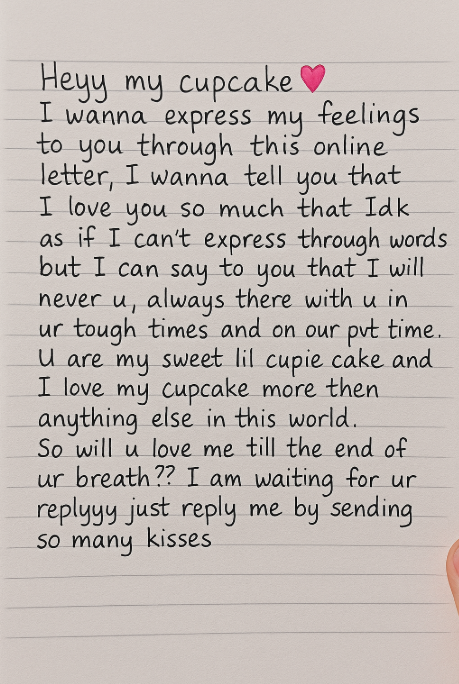 Heyy my cupcake💗
I wanna express my feelings
to you through this online
letter, I wanna tell you that
I love you so much that Idk
as if I can't express through words
but I can say to you that I will
never u, always there with u in
ur tough times and on our pvt time.
U are my sweet lil cupie cake and
I love my cupcake more then
anything else in this world.
So will u love me till the end of
ur breath?? I am waiting for ur
replyyy just reply me by sending
so many kisses